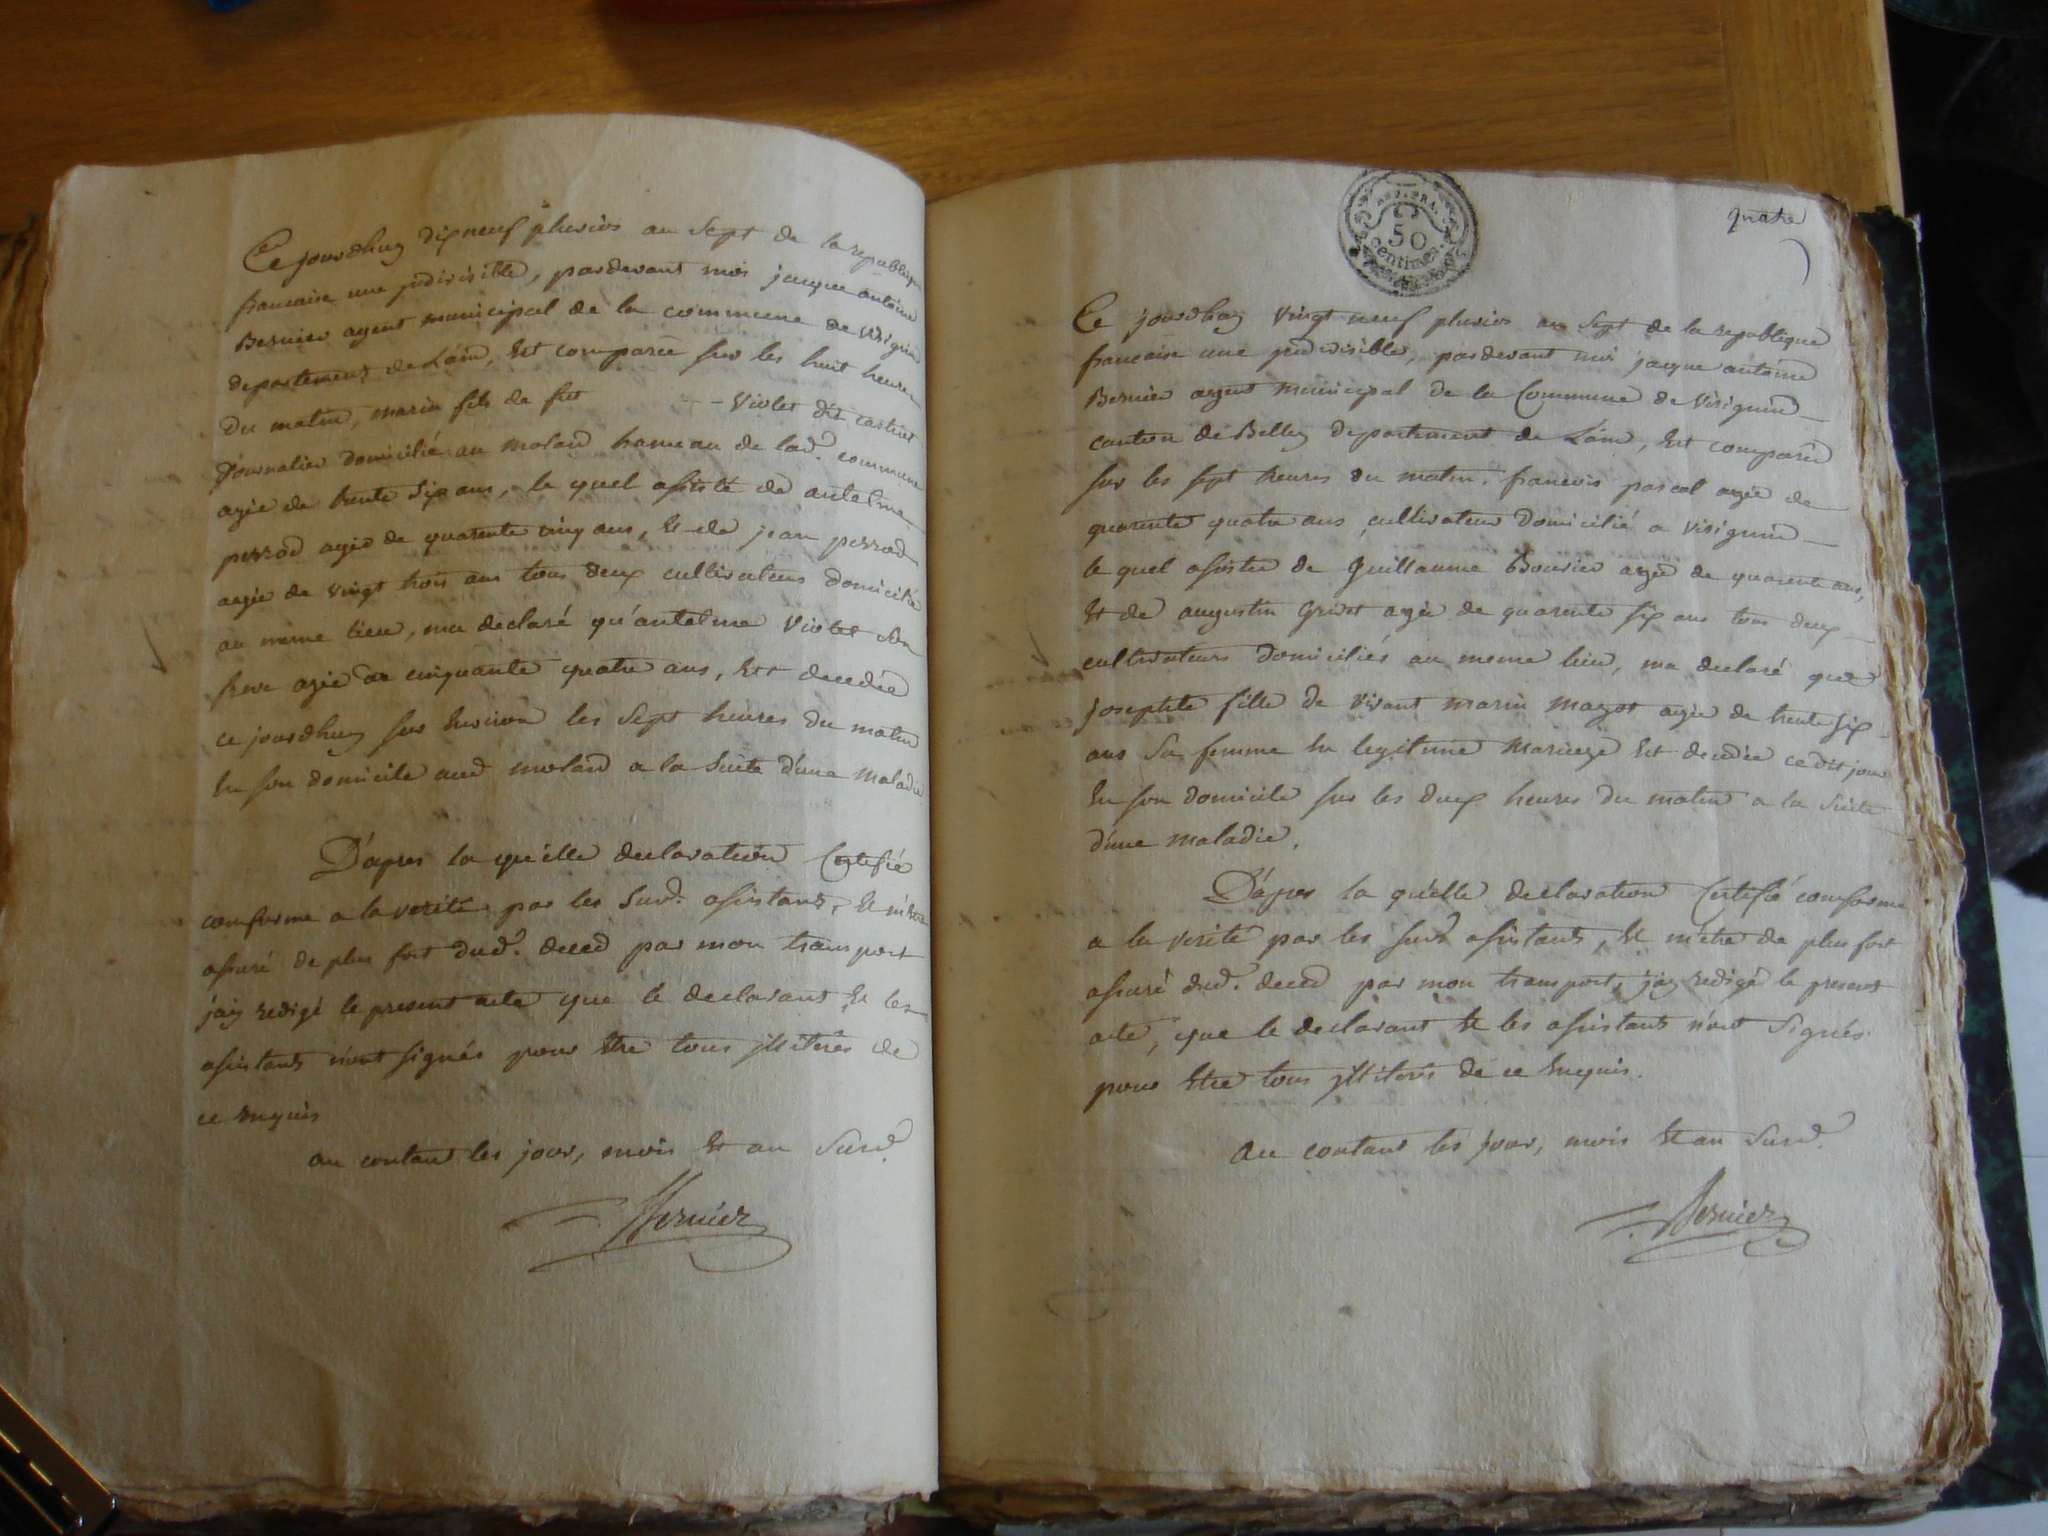 Ce jourdhuy dix neuf pluvios an sept de la republique
francaise une jndivisible, pardevant moi jacque antoine
Bernier agent municipal de la commune de virignin
departement de Lain, Est comparée sur les huit heures
du matin, marin fils de fut - - Violet dit
journalier domicilié au molard hameau de lad.e commune
agée de trente six ans, le quel assisté de antelme
perrod agée de quarente cinq ans, Et de jean perrod
agée de vingt trois ans tous deux cultivateurs domicilié
au meme lieu, ma declaré qu'antelme Violet son
frere agée de cinquante quatre ans, Est decedée
ce jourdhuy sur Environ les sept heures du matin
En son domicile aud molard a la suite d'une maladie
D'apres la qu'elle declaration Certifié
conforme a la verité par les susd. assistants, Et m'être
assuré de plus fort dud. deced par mon transport
j'ay redigé le present acte que le declarant Et les
assistants n'ont signés pour Etre tous jlliterés de
ce Enquis
au contant les jour, mois Et an susd.
Bernier
REP. FRA.
50
centimes
quatre
Ce jourdhuy vingt neuf pluvios an sept de la republique
francaise une jndivisible, pardevant moi jacque antoine
Bernier agent municipal de la Commune de virignin
canton de Belley departement de Lain, Est comparée
sur les sept heures du matin, francois pascal agée de
quarente quatre ans cultivateur domicilié a virignin
le quel assistée de Guillaume Bouvier agée de quarente ans,
Et de augustin Grivot agée de quarente six ans tous deux
cultivateurs domiciliés au meme lieu, ma declaré que
josephte fille de vivant marin magot agée de trente six
ans sa femme En legitime mariage Est decedée cedit jour
En son domicile sur les deux heures du matin a la suite
d'une maladie.
D'apres la qu'elle declaration Certifié conforme
a la verité par les susd assistants, Et m'etre de plus fort
assuré dud. deced par mon transport, j'ay redigé le present
acte, que le declarant Et les assistants n'ont signés
pour Etre tous jlliterés de ce Enquis.
Au contant les jour, mois Et an susd.
Bernier